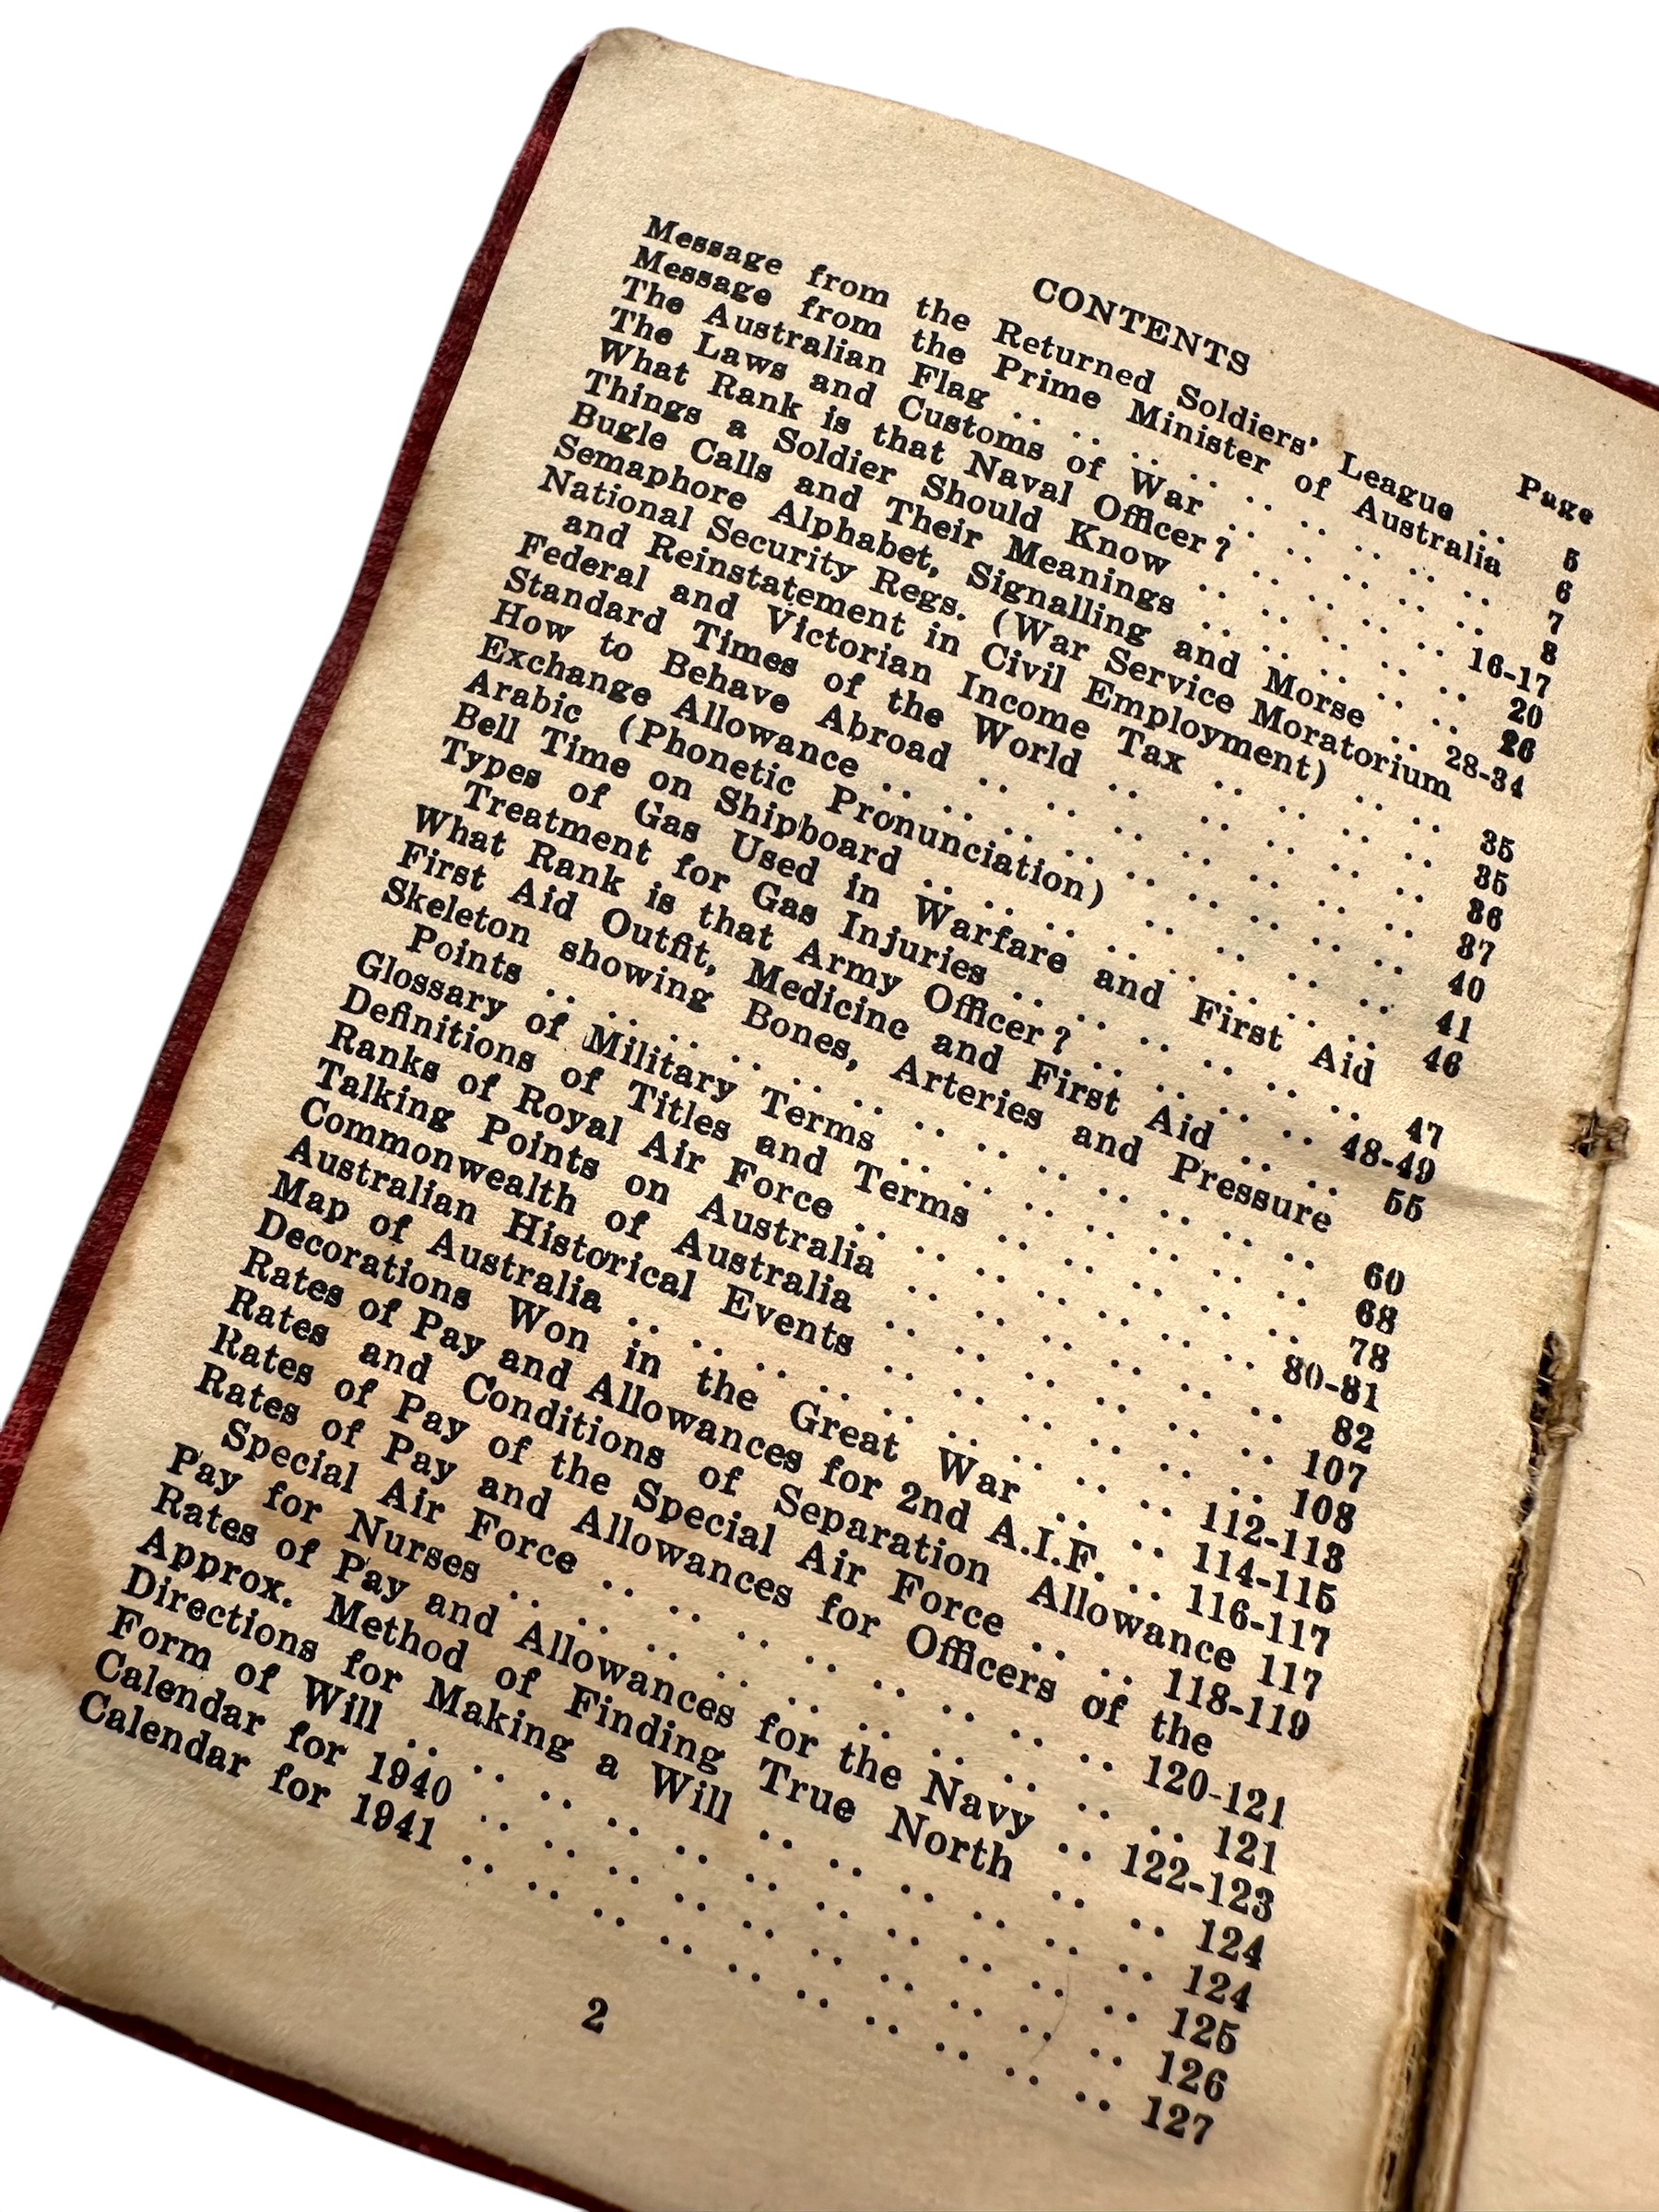 CONTENTS
Page
Message from the Returned Soldiers' League .. 5
Message from the Prime Minister of Australia 6
The Australian Flag .. .. .. .. .. .. .. .. 7
The Laws and Customs of War .. .. .. .. .. 8
What Rank is that Naval Officer? .. .. .. .. 16-17
Things a Soldier Should Know .. .. .. .. .. 20
Bugle Calls and Their Meanings .. .. .. .. .. 26
Semaphore Alphabet, Signalling and Morse .. 28-34
National Security Regs. (War Service Moratorium
and Reinstatement in Civil Employment) .. .. 35
Federal and Victorian Income Tax .. .. .. .. 35
Standard Times of the World .. .. .. .. .. 36
How to Behave Abroad .. .. .. .. .. .. .. 37
Exchange Allowance .. .. .. .. .. .. .. .. 40
Arabic (Phonetic Pronunciation) .. .. .. .. 41
Bell Time on Shipboard .. .. .. .. .. .. .. 46
Types of Gas Used in Warfare and First Aid
Treatment for Gas Injuries .. .. .. .. .. .. 47
What Rank is that Army Officer? .. .. .. .. 48-49
First Aid Outfit, Medicine and First Aid .. .. 55
Skeleton showing Bones, Arteries and Pressure
Points .. .. .. .. .. .. .. .. .. .. .. .. 60
Glossary of Military Terms .. .. .. .. .. .. 68
Definitions of Titles and Terms .. .. .. .. .. 78
Ranks of Royal Air Force .. .. .. .. .. .. 80-81
Talking Points on Australia .. .. .. .. .. .. 82
Commonwealth of Australia .. .. .. .. .. .. 107
Australian Historical Events .. .. .. .. .. .. 108
Map of Australia .. .. .. .. .. .. .. .. .. 112-113
Decorations Won in the Great War .. .. 114-115
Rates of Pay and Allowances for 2nd A.I.F. .. 116-117
Rates and Conditions of Separation Allowance 117
Rates of Pay of the Special Air Force .. .. 118-119
Rates of Pay and Allowances for Officers of the
Special Air Force .. .. .. .. .. .. .. .. 120-121
Pay for Nurses .. .. .. .. .. .. .. .. .. .. 121
Rates of Pay and Allowances for the Navy .. 122-123
Approx. Method of Finding True North .. .. 124
Directions for Making a Will .. .. .. .. .. .. 124
Form of Will .. .. .. .. .. .. .. .. .. .. .. 125
Calendar for 1940 .. .. .. .. .. .. .. .. .. 126
Calendar for 1941 .. .. .. .. .. .. .. .. .. 127
2